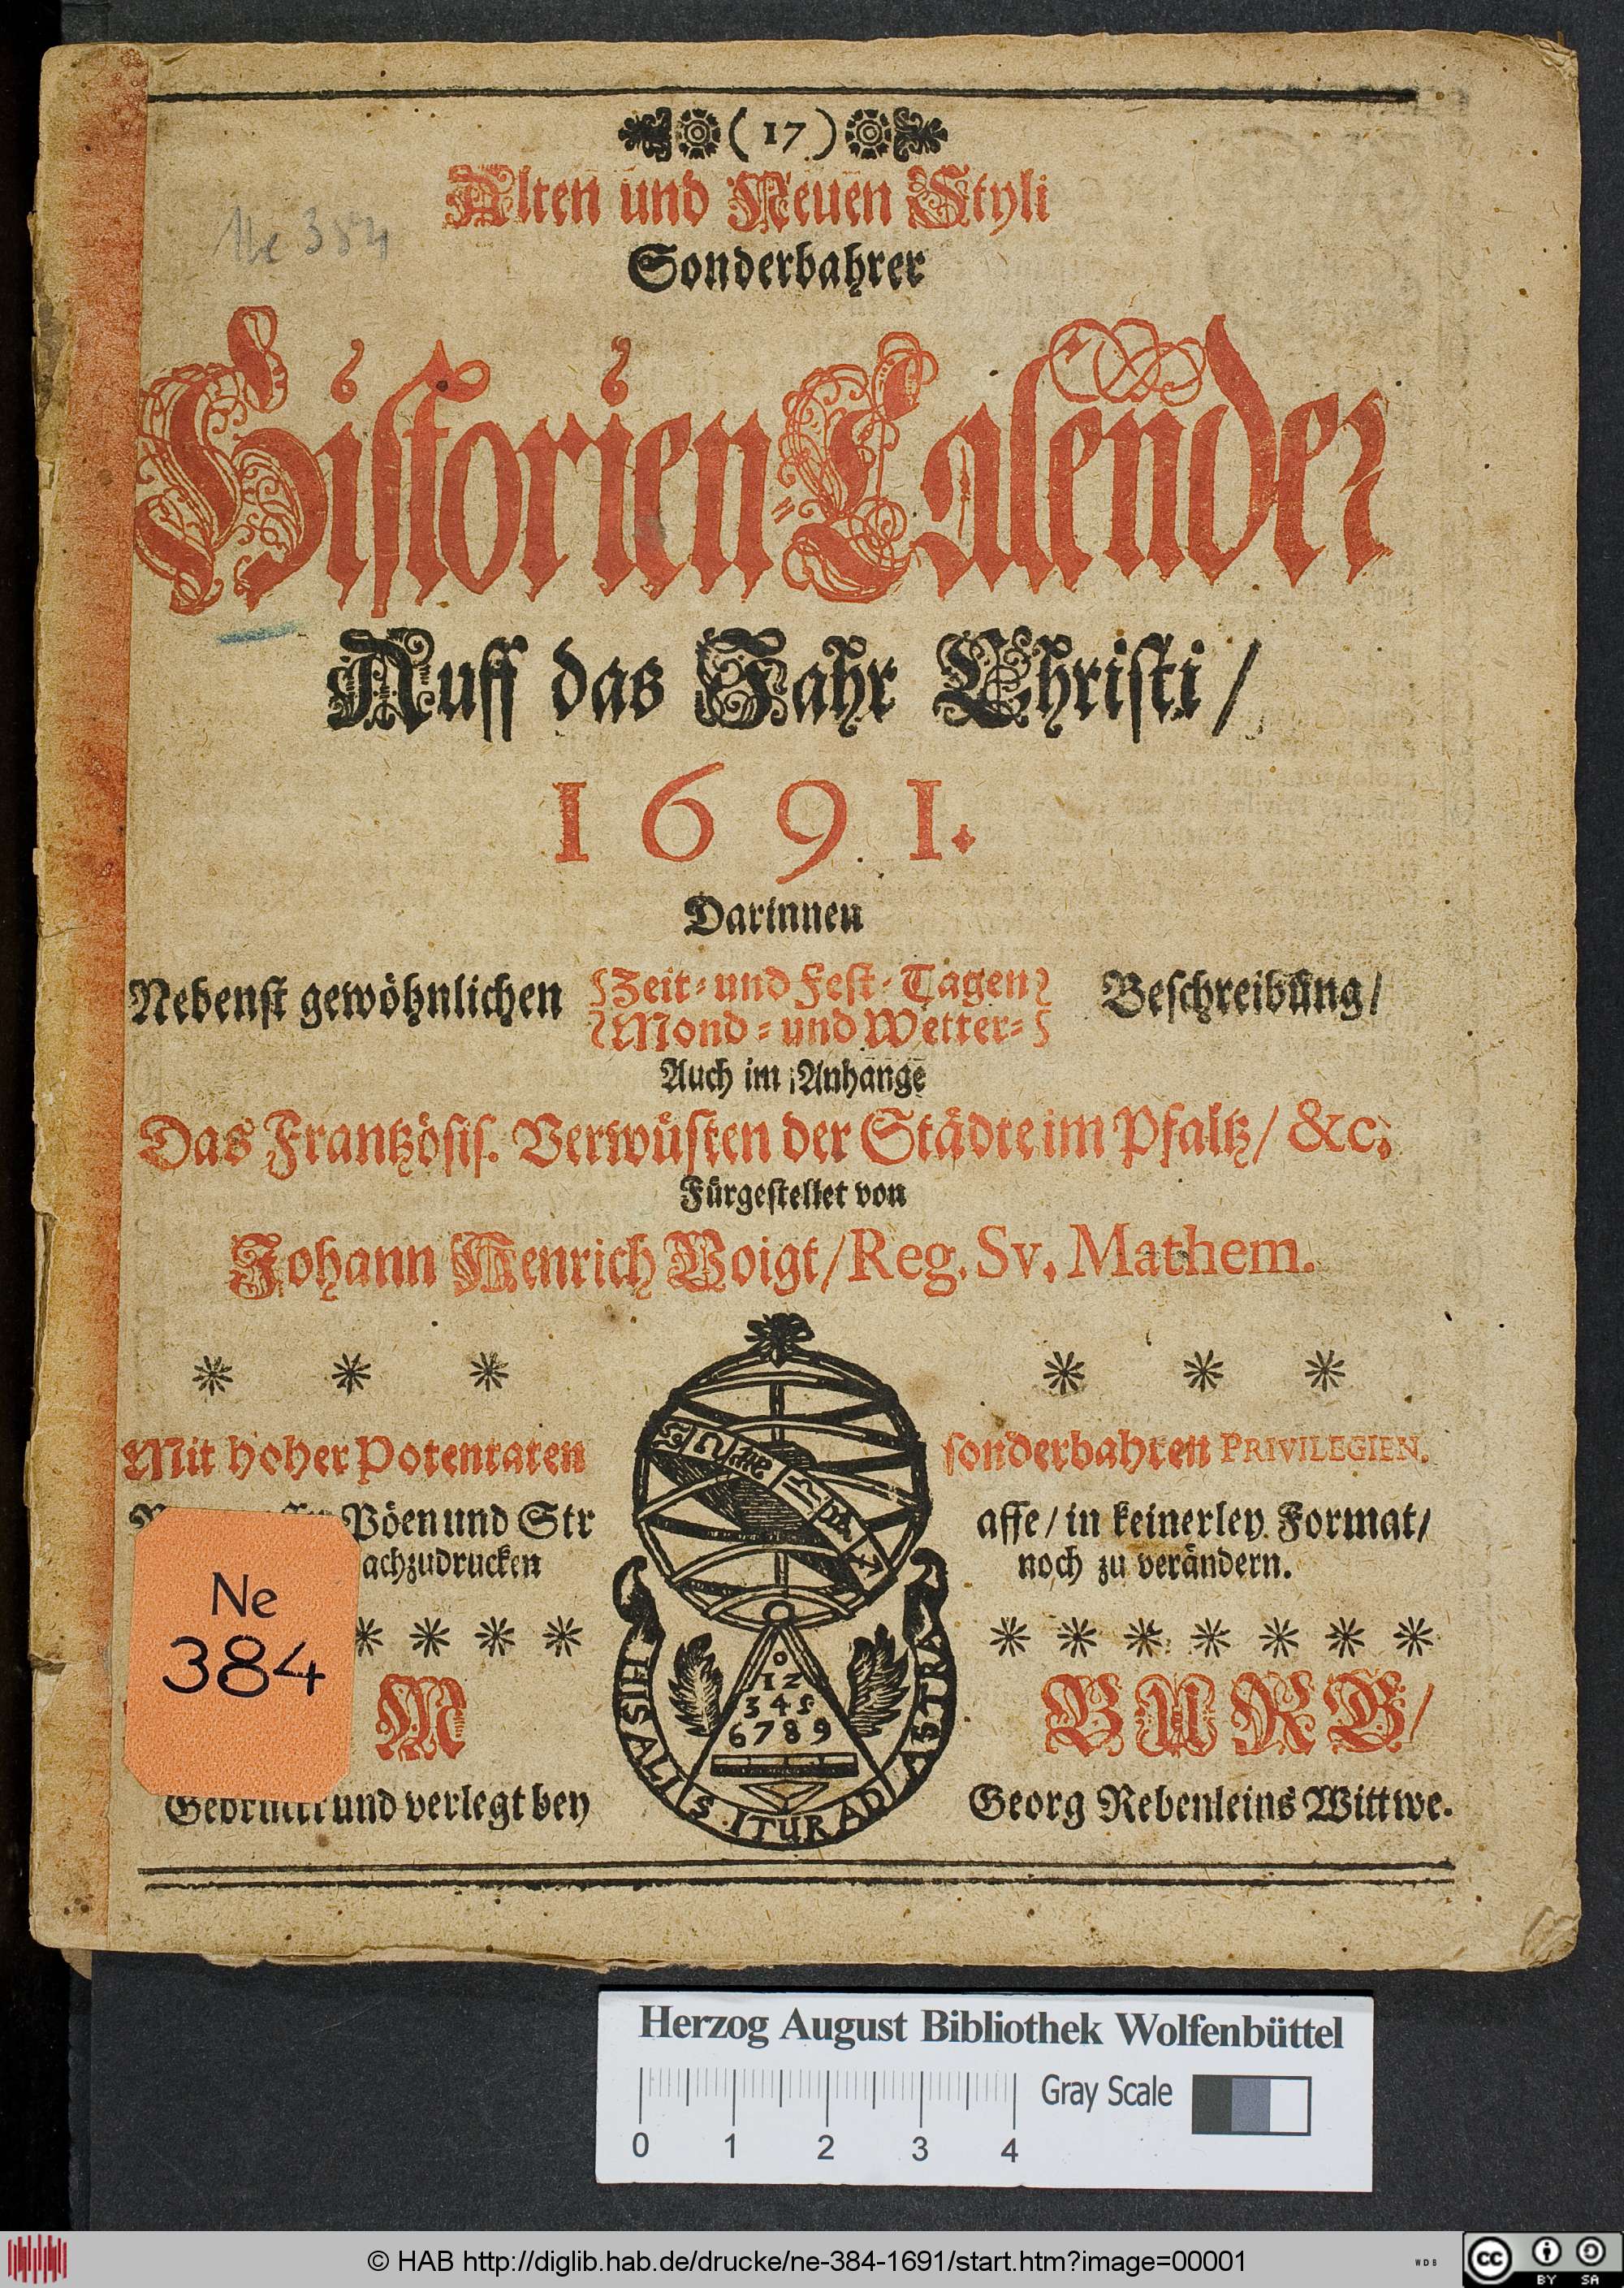 ( 17 )
Ne 384
Alten und Neuen Styli
Sonderbahrer
Historien-Calender
Auff das Jahr Christi /
1691.
Darinnen
Nebenst gewöhnlichen {Zeit- und Fest-Tagen} Beschreibung /
{Mond- und Wetter-}
Auch im Anhange
Das Frantzösis. Verwüsten der Städte im Pfaltz / &c.
Fürgestellet von
Johann Henrich Voigt / Reg. Sv. Mathem.
* * * * * *
Mit hoher Potentaten sonderbahren PRIVILEGIEN.
Pöen und Straffe / in keinerley Format /
achzudrucken noch zu verändern.
* * * * * * * * * * *
M BURG /
Gedruckt und verlegt bey Georg Rebenleins Wittwe.
0
12
345
6789
HIS ALIS ITUR AD ASTRA
Ne
384
Herzog August Bibliothek Wolfenbüttel
0 1 2 3 4
Gray Scale
© HAB http://diglib.hab.de/drucke/ne-384-1691/start.htm?image=00001
WDB
cc BY SA